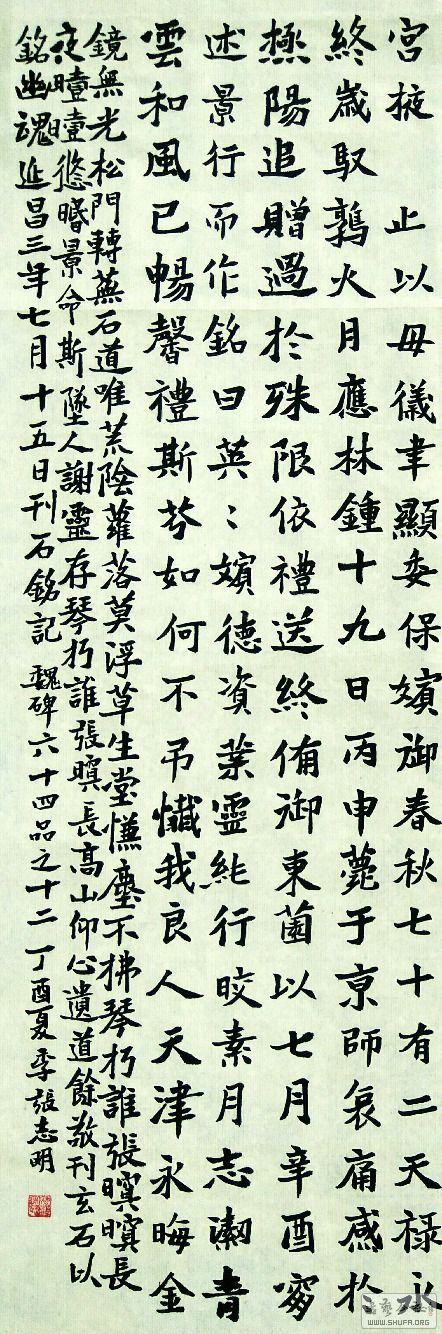 宮掖 止以母儀聿顯委保嬪御春秋七十有二天禄永
終歲馭鶉火月應林鍾十九日丙申薨于京師哀痛感於
極陽追贈過於殊限依禮送終侑御東菌以七月辛酉窆
述景行而作銘曰英〻嬪德資業靈純行皎素月志潔青
雲和風已暢馨禮斯芬如何不弔懺我良人天津永晦金
鏡無光松門轉蕪石道唯荒陰蘿落莫浮草生堂憮塵不拂琴朽誰張暝暝長
夜曀曀愁暗景命斯墜人謝靈存琴朽誰張暝長高山仰心遺道餘敬刊玄石以
銘幽魂延昌三年七月十五日刊石銘記 魏碑六十四品之十二 丁酉夏季張志明
WWW.SHUFA.ORG